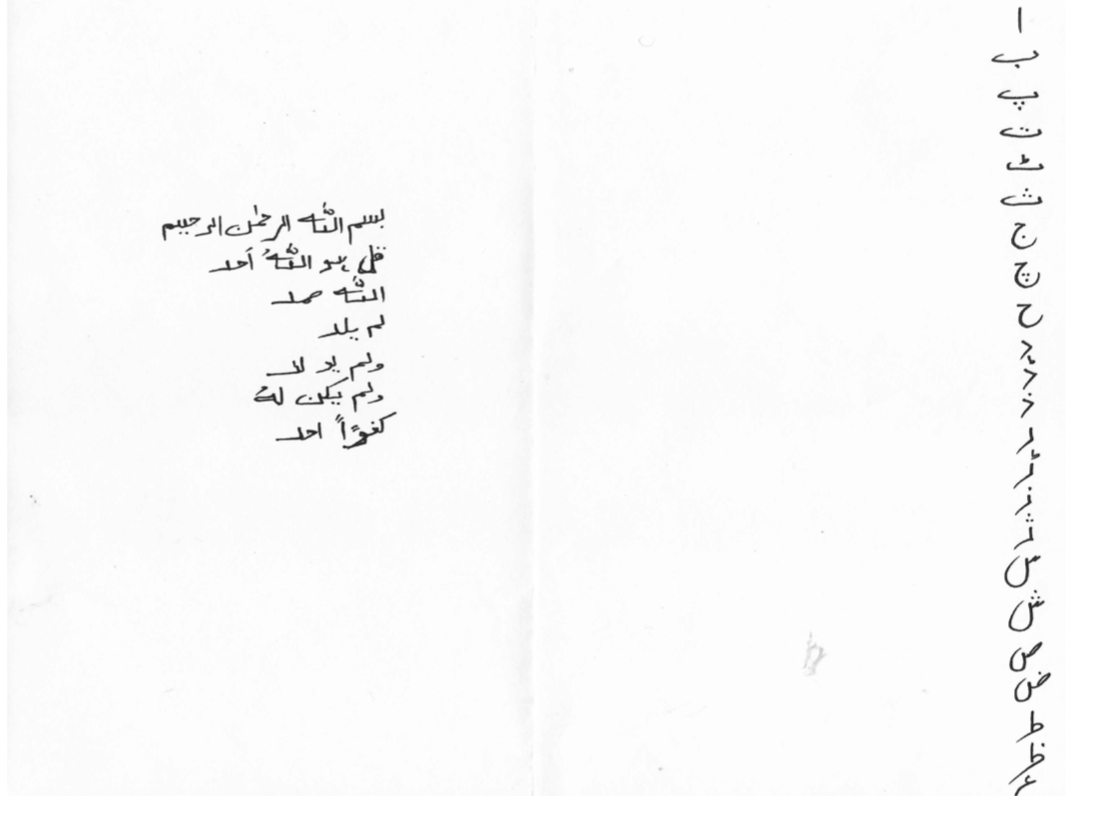 ا
ب
پ
ت
ٹ
ث
ج
چ
ح
خ
د
ڈ
ذ
ر
ڑ
ز
ژ
س
ش
ص
ض
ط
ظ
بسم اللّٰه الرحمٰن الرحيم
قل هو اللّٰهُ أحد
اللّٰه صمد
لم يلد
ولم يو لد
ولم يكن لهُ
كفوًاً احد